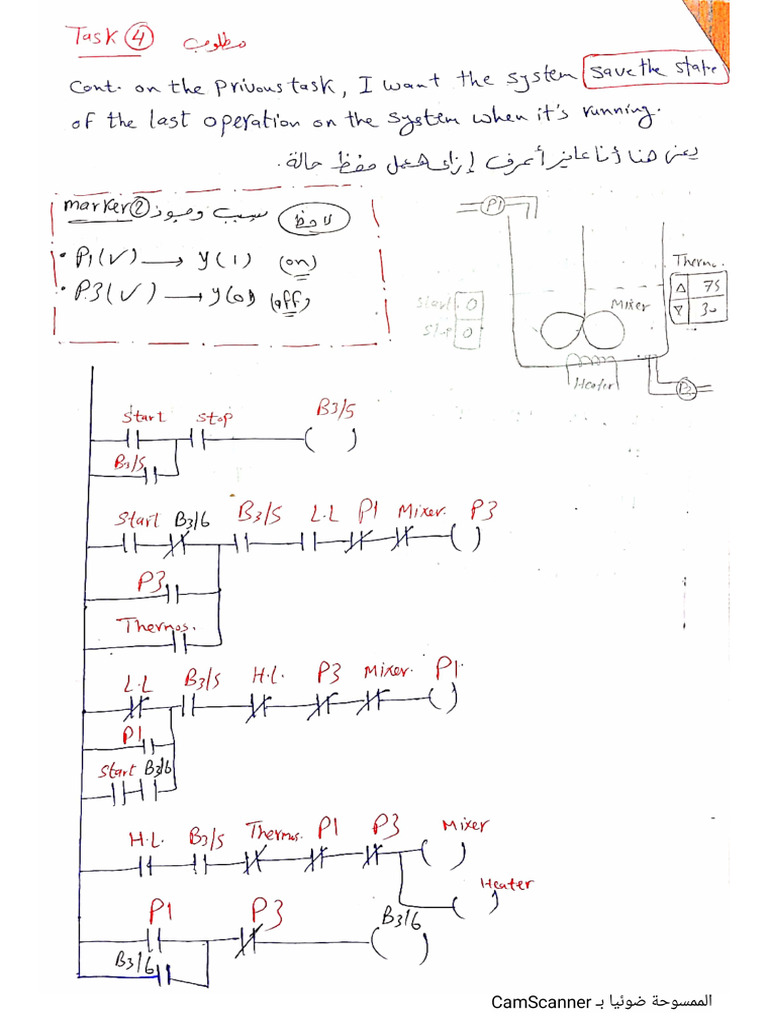 Task ④ مطلوب
Cont. on the privous task, I want the system save the state
of the last operation on the system when it's running.
يعني هنا أنا عايز أعرف إزاي هعمل حفظ حالة.
لاحظ سبب وجود marker②
• P1(✓) → y(1) (on)
• P3(✓) → y(0) (off)
P1
Thermo.
△ 75
▽ 30
Start 0
Stop 0
Mixer
Heater
Start Stop B3/5
B3/5
Start B3/6 B3/5 L.L P1 Mixer. P3
P3
Thermos.
L.L B3/5 H.L. P3 Mixer. P1.
P1
Start B3/6
H.L. B3/5 Thermos. P1 P3 Mixer
Heater
P1 P3 B3/6
B3/6
الممسوحة ضوئيا بـ CamScanner